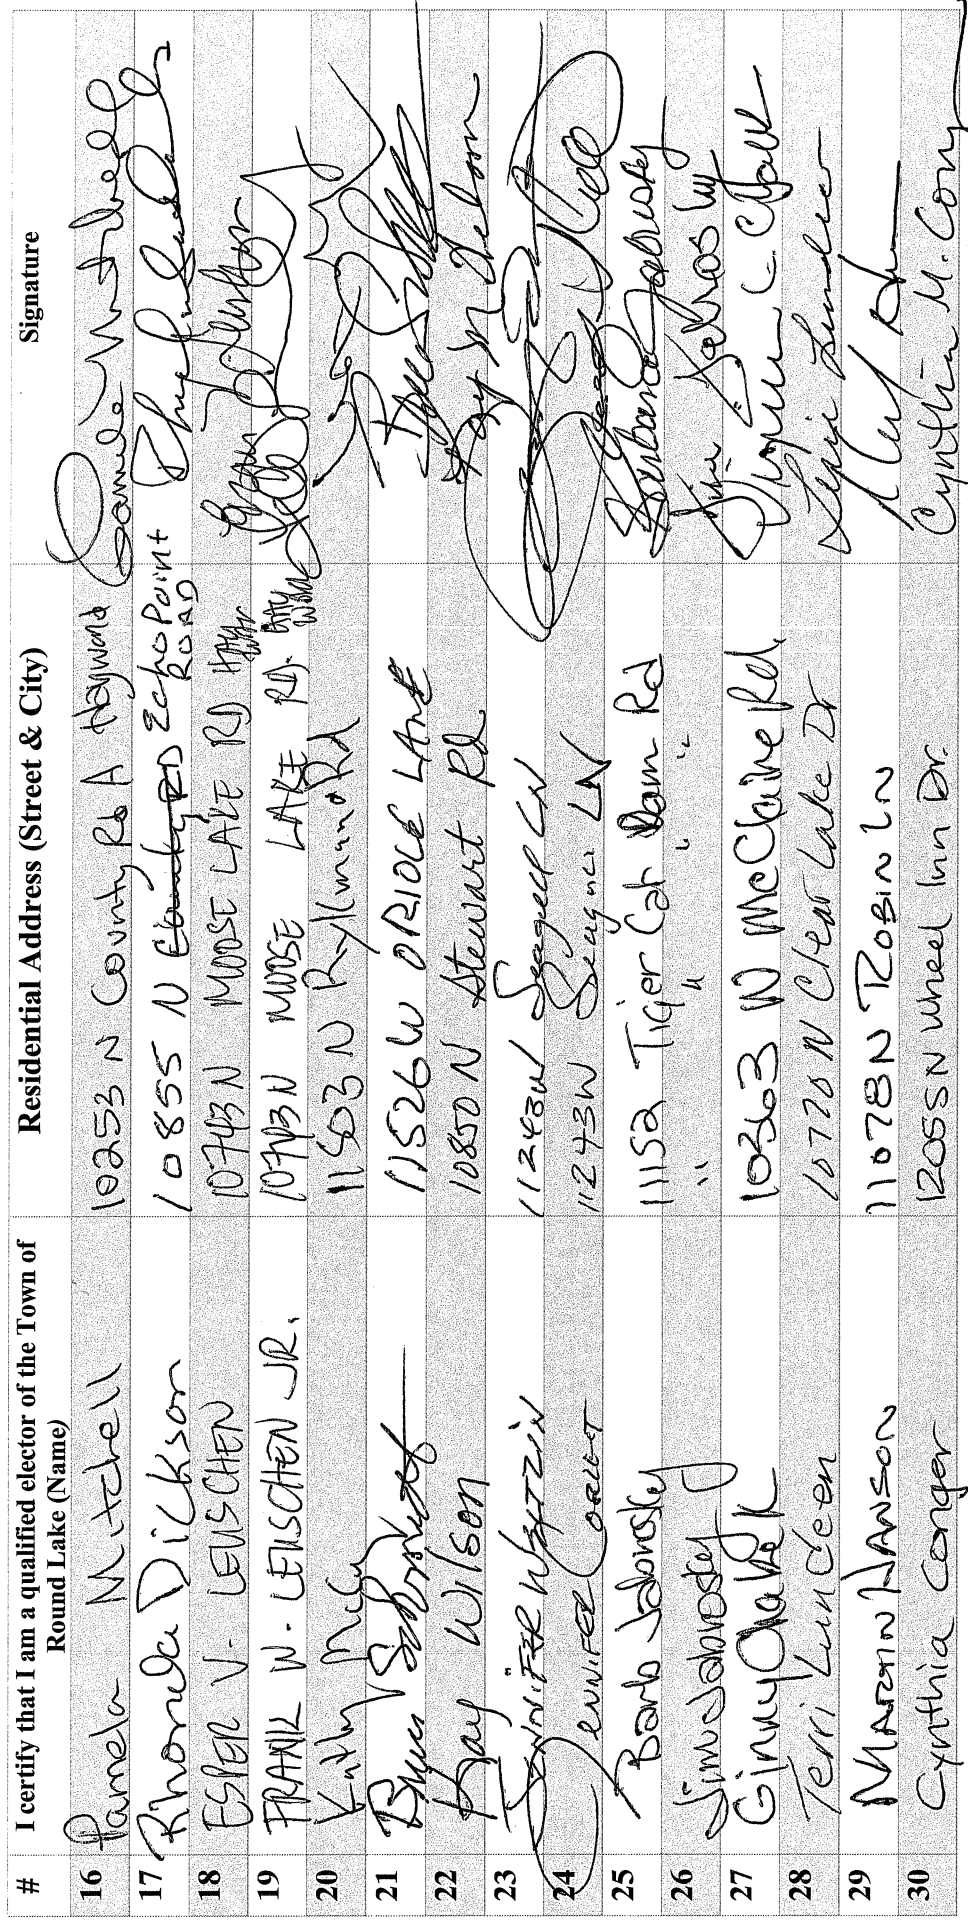 # I certify that I am a qualified elector of the Town of Round Lake (Name) Residential Address (Street & City) Signature
16 Pamela Mitchell 10253 N County Rd A Hayward
17 Rhonda Dickson 10855 N County RD Echo Point ROAD
18 ESPER V. LEUSCHEN 10743 N MOOSE LAKE RD HAY
19 FRANK W. LEUSCHEN JR. 10743 N MOOSE LAKE RD. HAY WARD
20 11503 N Rd
21 11526 W ORIOLE LANE
22 Kay Wilson 10850 N Stewart Rd Kay M Wilson
23 JENNIFER 11243W Seagull LN
24 JENNIFER 11243W Seagull LN
25 Barb Jabrosky 1152 Tiger Cat Dam Rd Barbara Jabrosky
26 Jim Jabrosky " " " " Jim Jabrosky
27 Ginny Chabek 10363 W McClaine Rd
28 Terri Lundeen 10720 N Clear Lake Dr
29 MARTIN HANSON 11078 N ROBIN LN
30 Cynthia Conger 12055 N Wheel Inn Dr. Cynthia M. Cong